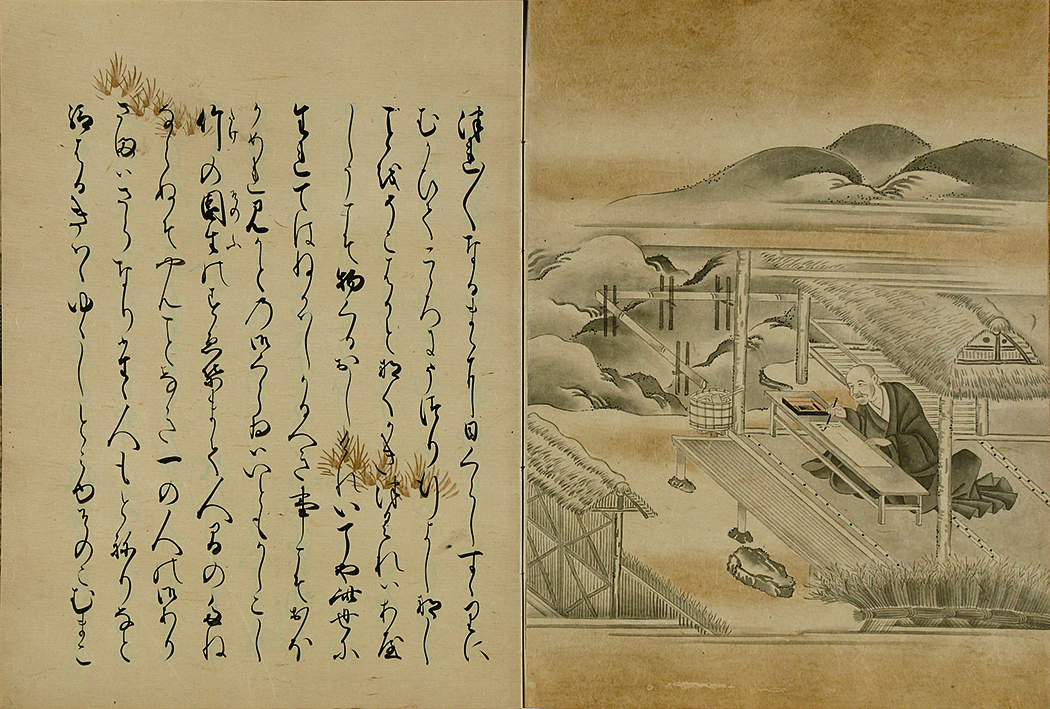 つれ〱なるまゝに日くらしすゝりに
むかひてこゝろにうつり行よしなし
ことをそこはかとなくかきつくれはあや
しうこそ物くるおしけれいてや此世に
生れてはねかはしかるへき事こそおほ
かめれ見かとの御くらゐはいともかしこし
竹の園生のすゑ葉まて人間のたね
ならぬそやんことなき一の人の御あり
さまはさらなりたゝ人もとねりなと
給はるきはゝゆゝしとみゆそのこむまこ